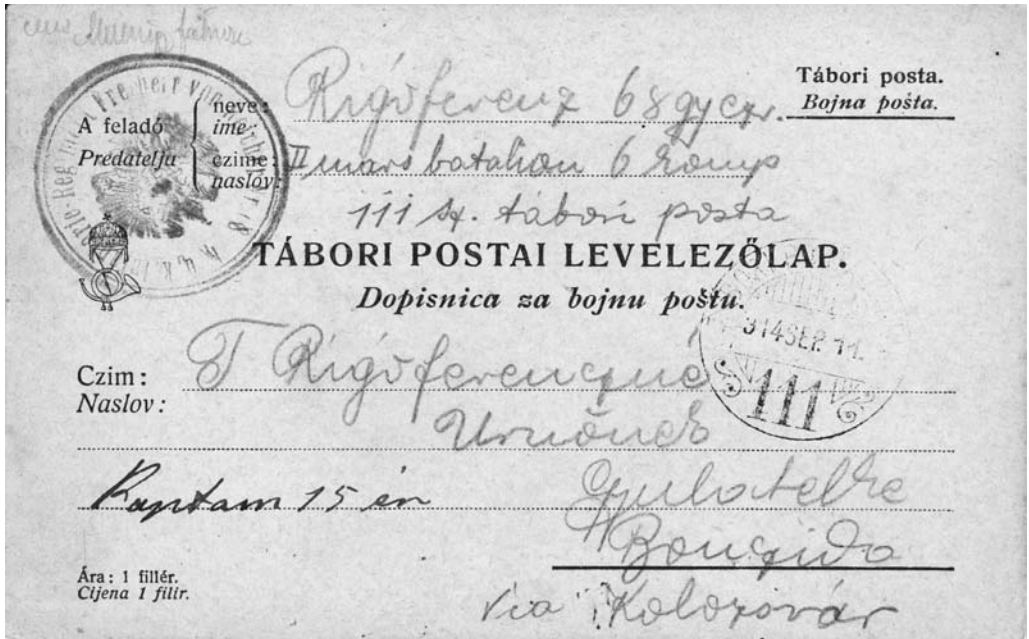 Tábori posta.
Bojna pošta.
A feladó
Predatelja
neve:
ime
Rigó ferencz 68 gy ezr.
czime:
naslov:
II mars batalion 6 komp
111 sz. tábori posta
TÁBORI POSTAI LEVELEZŐLAP.
Dopisnica za bojnu poštu.
914 SEP. 11.
111
Czim:
Naslov:
T Rigó ferenczné
Urnőnek
Kaptam 15 én
Gyulatelke
Bonczida
via Kolozsvár
Ára: 1 fillér.
Cijena 1 filir.